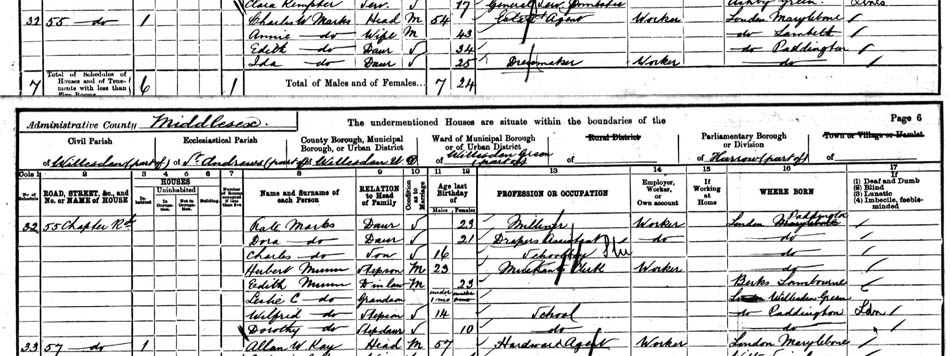 Clara Kempter Serv. S 17 General Serv. Domestic
32 55 do 1 Charles W. Marks Head M 54 Estate Agent Worker London Marylebone
Annie do Wife M 43 do Lambeth
Edith do Daur S 24 do Paddington
Ida do Daur S 25 Dressmaker Worker do
7 Total of Schedules of Houses and of Tenements with less than Five Rooms 6 1 Total of Males and of Females... 7 24
Administrative County Middlesex. The undermentioned Houses are situate within the boundaries of the Page 6
Civil Parish Ecclesiastical Parish County Borough, Municipal Borough, or Urban District Ward of Municipal Borough or of Urban District Rural District Parliamentary Borough or Division Town or Village or Hamlet
of Willesden (part of) of St. Andrews (part of) of Willesden U.D. of Willesden Green (part of) of of Harrow (part of) of
Cols 1 2 3 4 5 6 7 8 9 10 11 12 13 14 15 16 17
ROAD, STREET, &c., and No. or NAME of HOUSE HOUSES Inhabited Uninhabited In Occupation Not in Occupation Building Name and Surname of each Person RELATION to Head of Family Condition as to Marriage Age last Birthday of Males Females PROFESSION OR OCCUPATION Employer, Worker, or Own account If Working at Home WHERE BORN If (1) Deaf and Dumb (2) Blind (3) Lunatic (4) Imbecile, feeble-minded
32 55 Chapter Rd Kate Marks Daur S 23 Milliner Worker London Paddington
Dora do Daur S 21 Drapers Assistant do do
Charles do Son S 16 Schoolboy do
Hubert Munn Stepson M 23 Merchants Clerk Worker do
Edith Munn D in law M 23 Berks Lambourne
Leslie C do Grandson under 1 mo Willesden Green
Wilfred do Stepson S 14 School do Paddington
Dorothy do Stepdaur S 10 do do
33 57 do 1 Allan W. Kay Head M 57 Hardware Agent London Marylebone